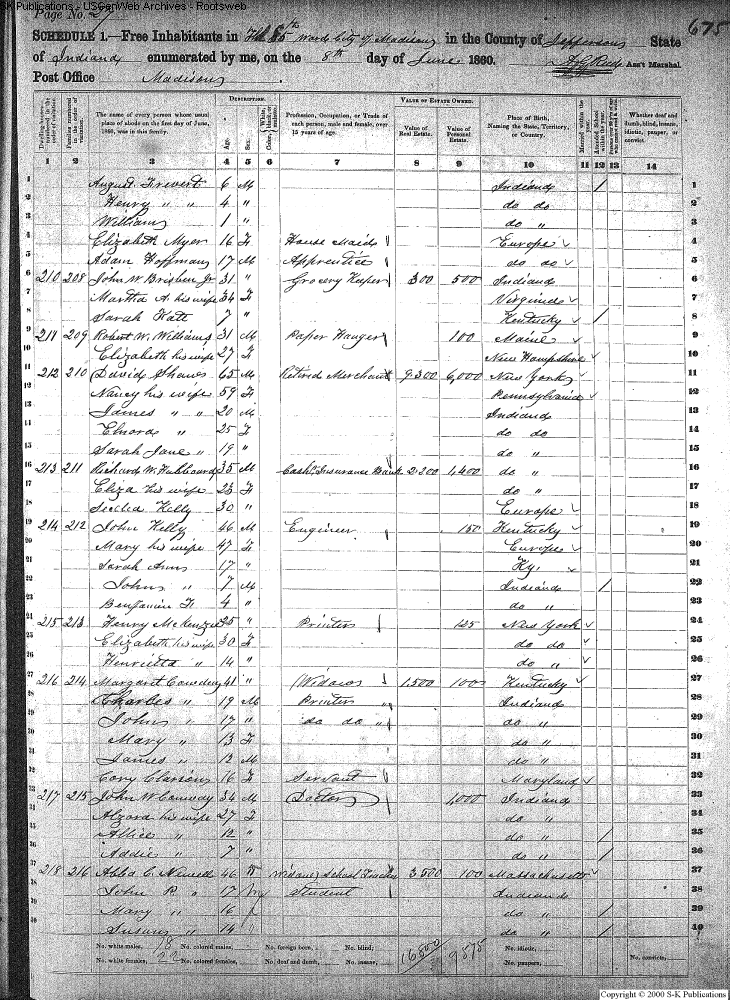 SK Publications - USGenWeb Archives - Rootsweb
Page No. 27
675
SCHEDULE 1.—Free Inhabitants in The 5th Ward City of Madison in the County of Jefferson State
of Indiana enumerated by me, on the 8th day of June 1860. Ass't Marshal.
Post Office Madison
DESCRIPTION. VALUE OF ESTATE OWNED.
The name of every person whose usual place of abode on the first day of June, 1860, was in this family. Age. Sex. Profession, Occupation, or Trade of each person, male and female, over 15 years of age. Value of Real Estate. Value of Personal Estate. Place of Birth, Naming the State, Territory, or Country. Whether deaf and dumb, blind, insane, idiotic, pauper, or convict.
1 2 3 4 5 6 7 8 9 10 11 12 13 14
1 August Frevert 6 M Indiana / 1
2 Henry " " 4 " do do 2
3 William 1 " do " 3
4 Elizabeth Myer 16 F House Maid Europe 4
5 Adam Hoffman 17 M Apprentice do do 5
6 210 208 John W Brisben Jr 31 " Grocery Keeper 300 500 Indiana 6
7 Martha A. his wife 34 F Virginia 7
8 Sarah 7 " Kentucky / 8
9 211 209 Robert W. Williams 31 M Paper Hanger 100 Maine 9
10 Elizabeth his wife 27 F New Hampshire 10
11 212 210 David Shaw 65 M Retired Merchant 9300 6,000 New York 11
12 Nancy his wife 59 F Pennsylvania 12
13 James " " 20 M Indiana 13
14 Elnora " 25 F do do 14
15 Sarah Jane " 19 " do " 15
16 213 211 Richard W. Hubbard 35 M Cash. Insurance Bank 2200 1,400 do " 16
17 Eliza his wife 23 F do " 17
18 Kelly 30 " Europe 18
19 214 212 John Kelly 46 M Engineer 150 Kentucky 19
20 Mary his wife 47 F Europe 20
21 Sarah Ann 17 " Ky. 21
22 John " 7 M Indiana / 22
23 Benjamin F. 4 " do " 23
24 215 213 Henry McKenzie 25 " Printer 125 New York 24
25 Elizabeth his wife 30 F do do 25
26 Henrietta " 14 " do " 26
27 216 214 Margaret 41 " Widow 1,500 100 Kentucky 27
28 Charles " 19 M Printer Indiana 28
29 John " 17 " do do " do " 29
30 Mary " 13 F do " 30
31 James " 12 M do " 31
32 16 F Servant Maryland 32
33 217 215 John W 34 M Doctor 1,000 Indiana 33
34 his wife 27 F do " 34
35 Allice " 12 " do " / 35
36 Addie " 7 " do " / 36
37 218 216 Abba C. Newell 46 Widow School Teacher 3500 100 Massachusetts 37
38 John R. " 17 M Student Indiana 38
39 Mary " 16 f do " / 39
40 Susan " 14 " do " / 40
No. white males, 18 No. colored males, No. foreign born, No. blind, 16500 9875 No. idiotic,
No. white females, 22 No. colored females, No. deaf and dumb, No. insane, No. paupers, No. convicts,
Copyright © 2000 S-K Publications